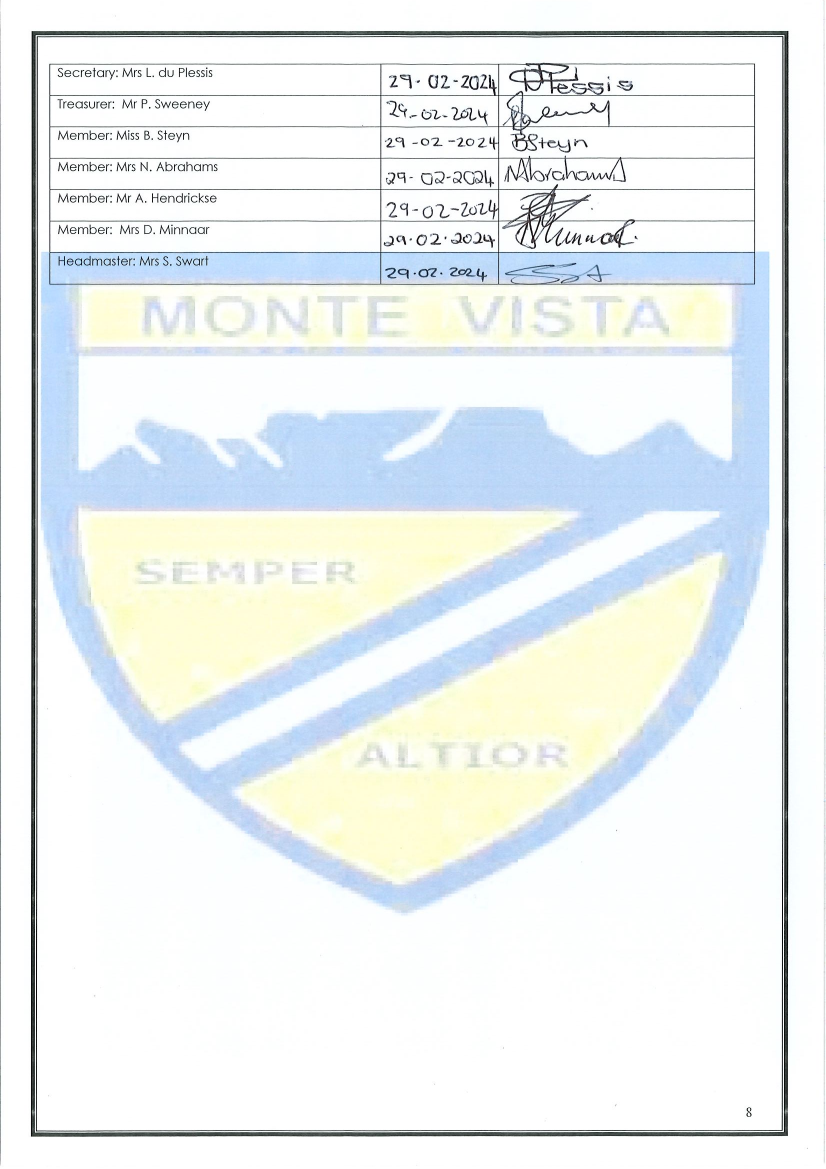 Secretary: Mrs L. du Plessis 29-02-2024 du Plessis
Treasurer: Mr P. Sweeney 29-02-2024
Member: Miss B. Steyn 29-02-2024 BSteyn
Member: Mrs N. Abrahams 29-02-2024 NAbrahams
Member: Mr A. Hendrickse 29-02-2024
Member: Mrs D. Minnaar 29.02.2024 DMinnaar
Headmaster: Mrs S. Swart 29.02.2024
MONTE VISTA
SEMPER
ALTIOR
8